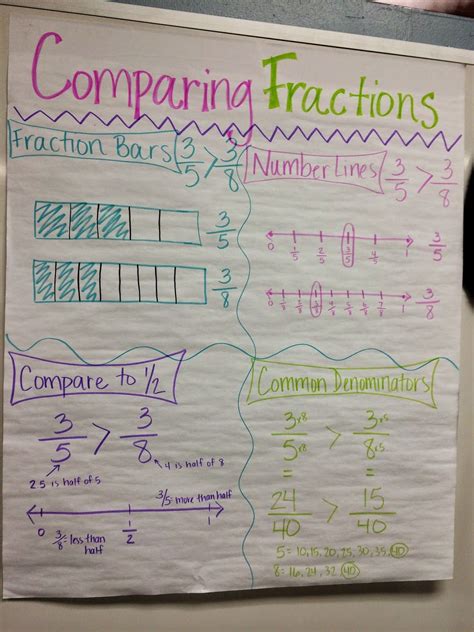 Comparing Fractions
Fraction Bars 3/5 > 3/8
3/5
3/8
Number Lines 3/5 > 3/8
0 1/5 2/5 3/5 4/5 1 3/5
0 1/8 2/8 3/8 4/8 5/8 6/8 7/8 1 3/8
Compare to 1/2
3/5 > 3/8
4 is half of 8
2.5 is half of 5
3/5 = more than half
0 1/2 1
3/8 = less than half
Common Denominators
3 x8 / 5 x8 > 3 x5 / 8 x5
= =
24/40 > 15/40
5 = 10, 15, 20, 25, 30, 35, 40
8 = 16, 24, 32, 40